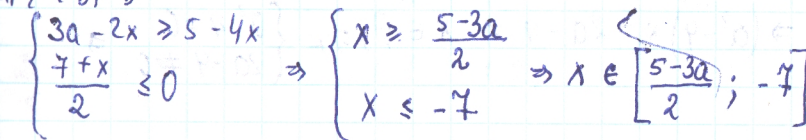 { 3a - 2x ≥ 5 - 4x
(7+x)/2 ≤ 0
⇒ { x ≥ (5-3a)/2
x ≤ -7
⇒ x ∈ [(5-3a)/2 ; -7]